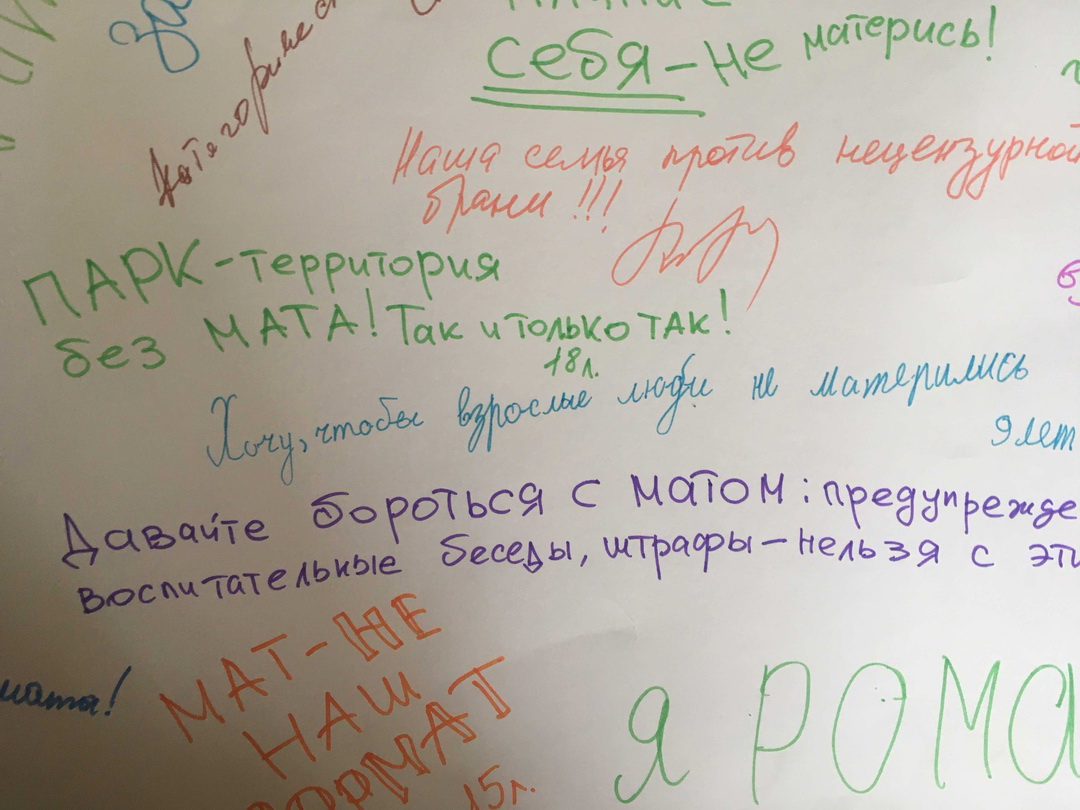 себя – не матерись!
Наша семья против нецензурной
брани!!!
ПАРК – территория
без МАТА! Так и только ТАК!
18 л.
Хочу, чтобы взрослые люди не матерились
9 лет
Давайте бороться с матом: предупрежде
воспитательные беседы, штрафы – нельзя с эти
мата!
МАТ – НЕ
НАШ
ФОРМАТ
15 г.
я РОМА